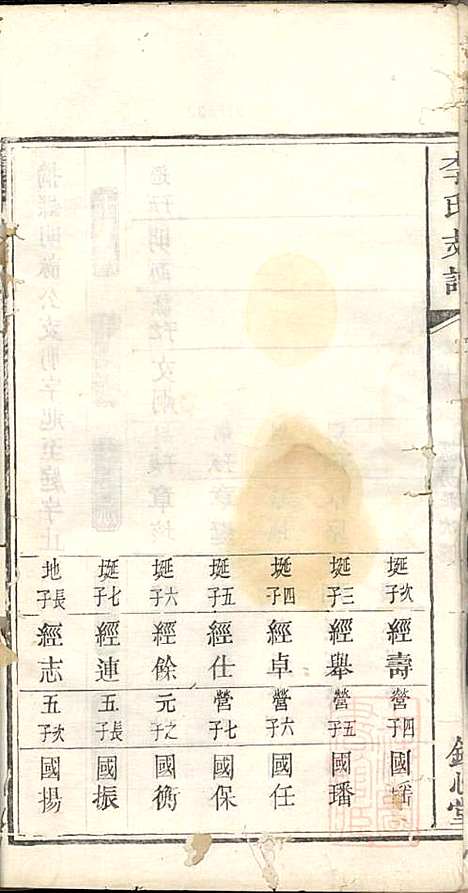 李氏支譜
心堂
埏次子 經壽
埏三子 經舉
埏四子 經卓
埏五子 經仕
埏六子 經餘
埏七子 經連
地長子 經志
營四子 國瑤
營五子 國璠
營六子 國任
營七子 國保
元之子 國衡
五長子 國振
五次子 國揚